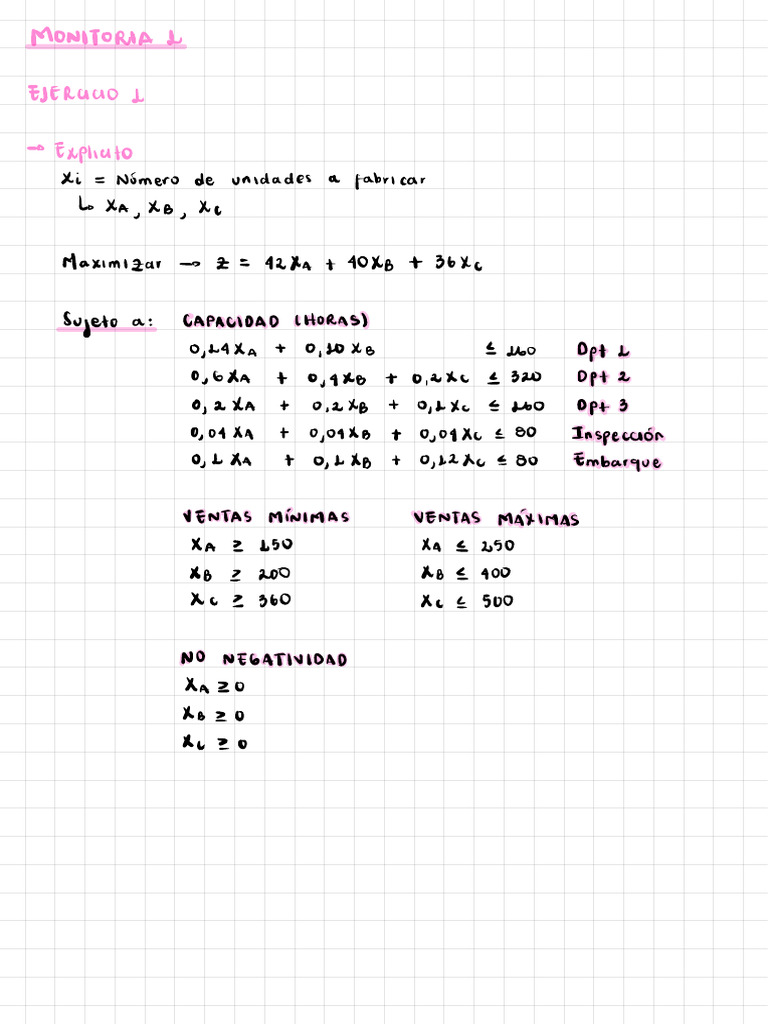 MONITORIA 1
EJERCICIO 1
→ Explicito
Xi = Número de unidades a fabricar
↳ XA, XB, XC
Maximizar → Z = 42XA + 40XB + 36XC
Sujeto a: CAPACIDAD (HORAS)
0,14XA + 0,10XB ≤ 160 Dpt 1
0,6XA + 0,4XB + 0,2XC ≤ 320 Dpt 2
0,2XA + 0,2XB + 0,1XC ≤ 160 Dpt 3
0,04XA + 0,04XB + 0,04XC ≤ 80 Inspección
0,1XA + 0,1XB + 0,12XC ≤ 80 Embarque
VENTAS MÍNIMAS VENTAS MÁXIMAS
XA ≥ 150 XA ≤ 250
XB ≥ 200 XB ≤ 400
XC ≥ 360 XC ≤ 500
NO NEGATIVIDAD
XA ≥ 0
XB ≥ 0
XC ≥ 0